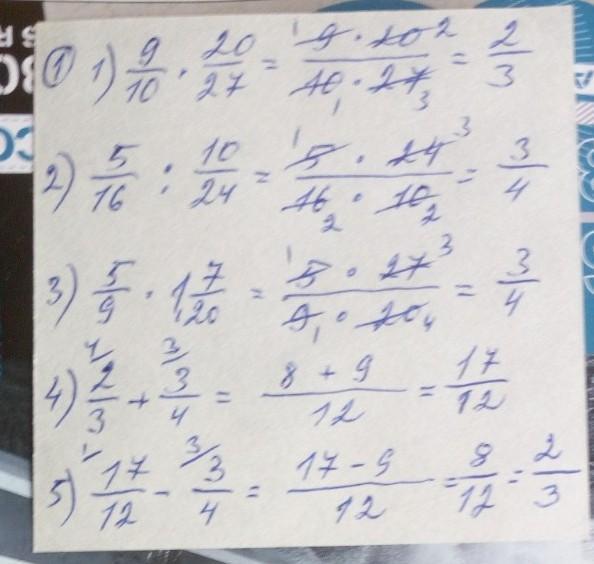 ① 1) 9/10 · 20/27 = 9 · 20 / 10 · 27 = 2/3
2) 5/16 : 10/24 = 5 · 24 / 16 · 10 = 3/4
3) 5/9 · 1 7/20 = 5 · 27 / 9 · 20 = 3/4
4) 2/3 + 3/4 = 8 + 9 / 12 = 17/12
5) 17/12 - 3/4 = 17 - 9 / 12 = 8/12 = 2/3